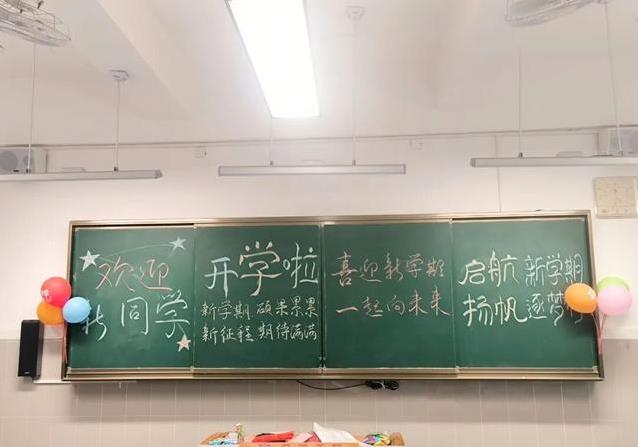 欢迎
新同学
开学啦
新学期 硕果累累
新征程 期待满满
喜迎新学期
一起向未来
启航 新学期
扬帆 逐梦